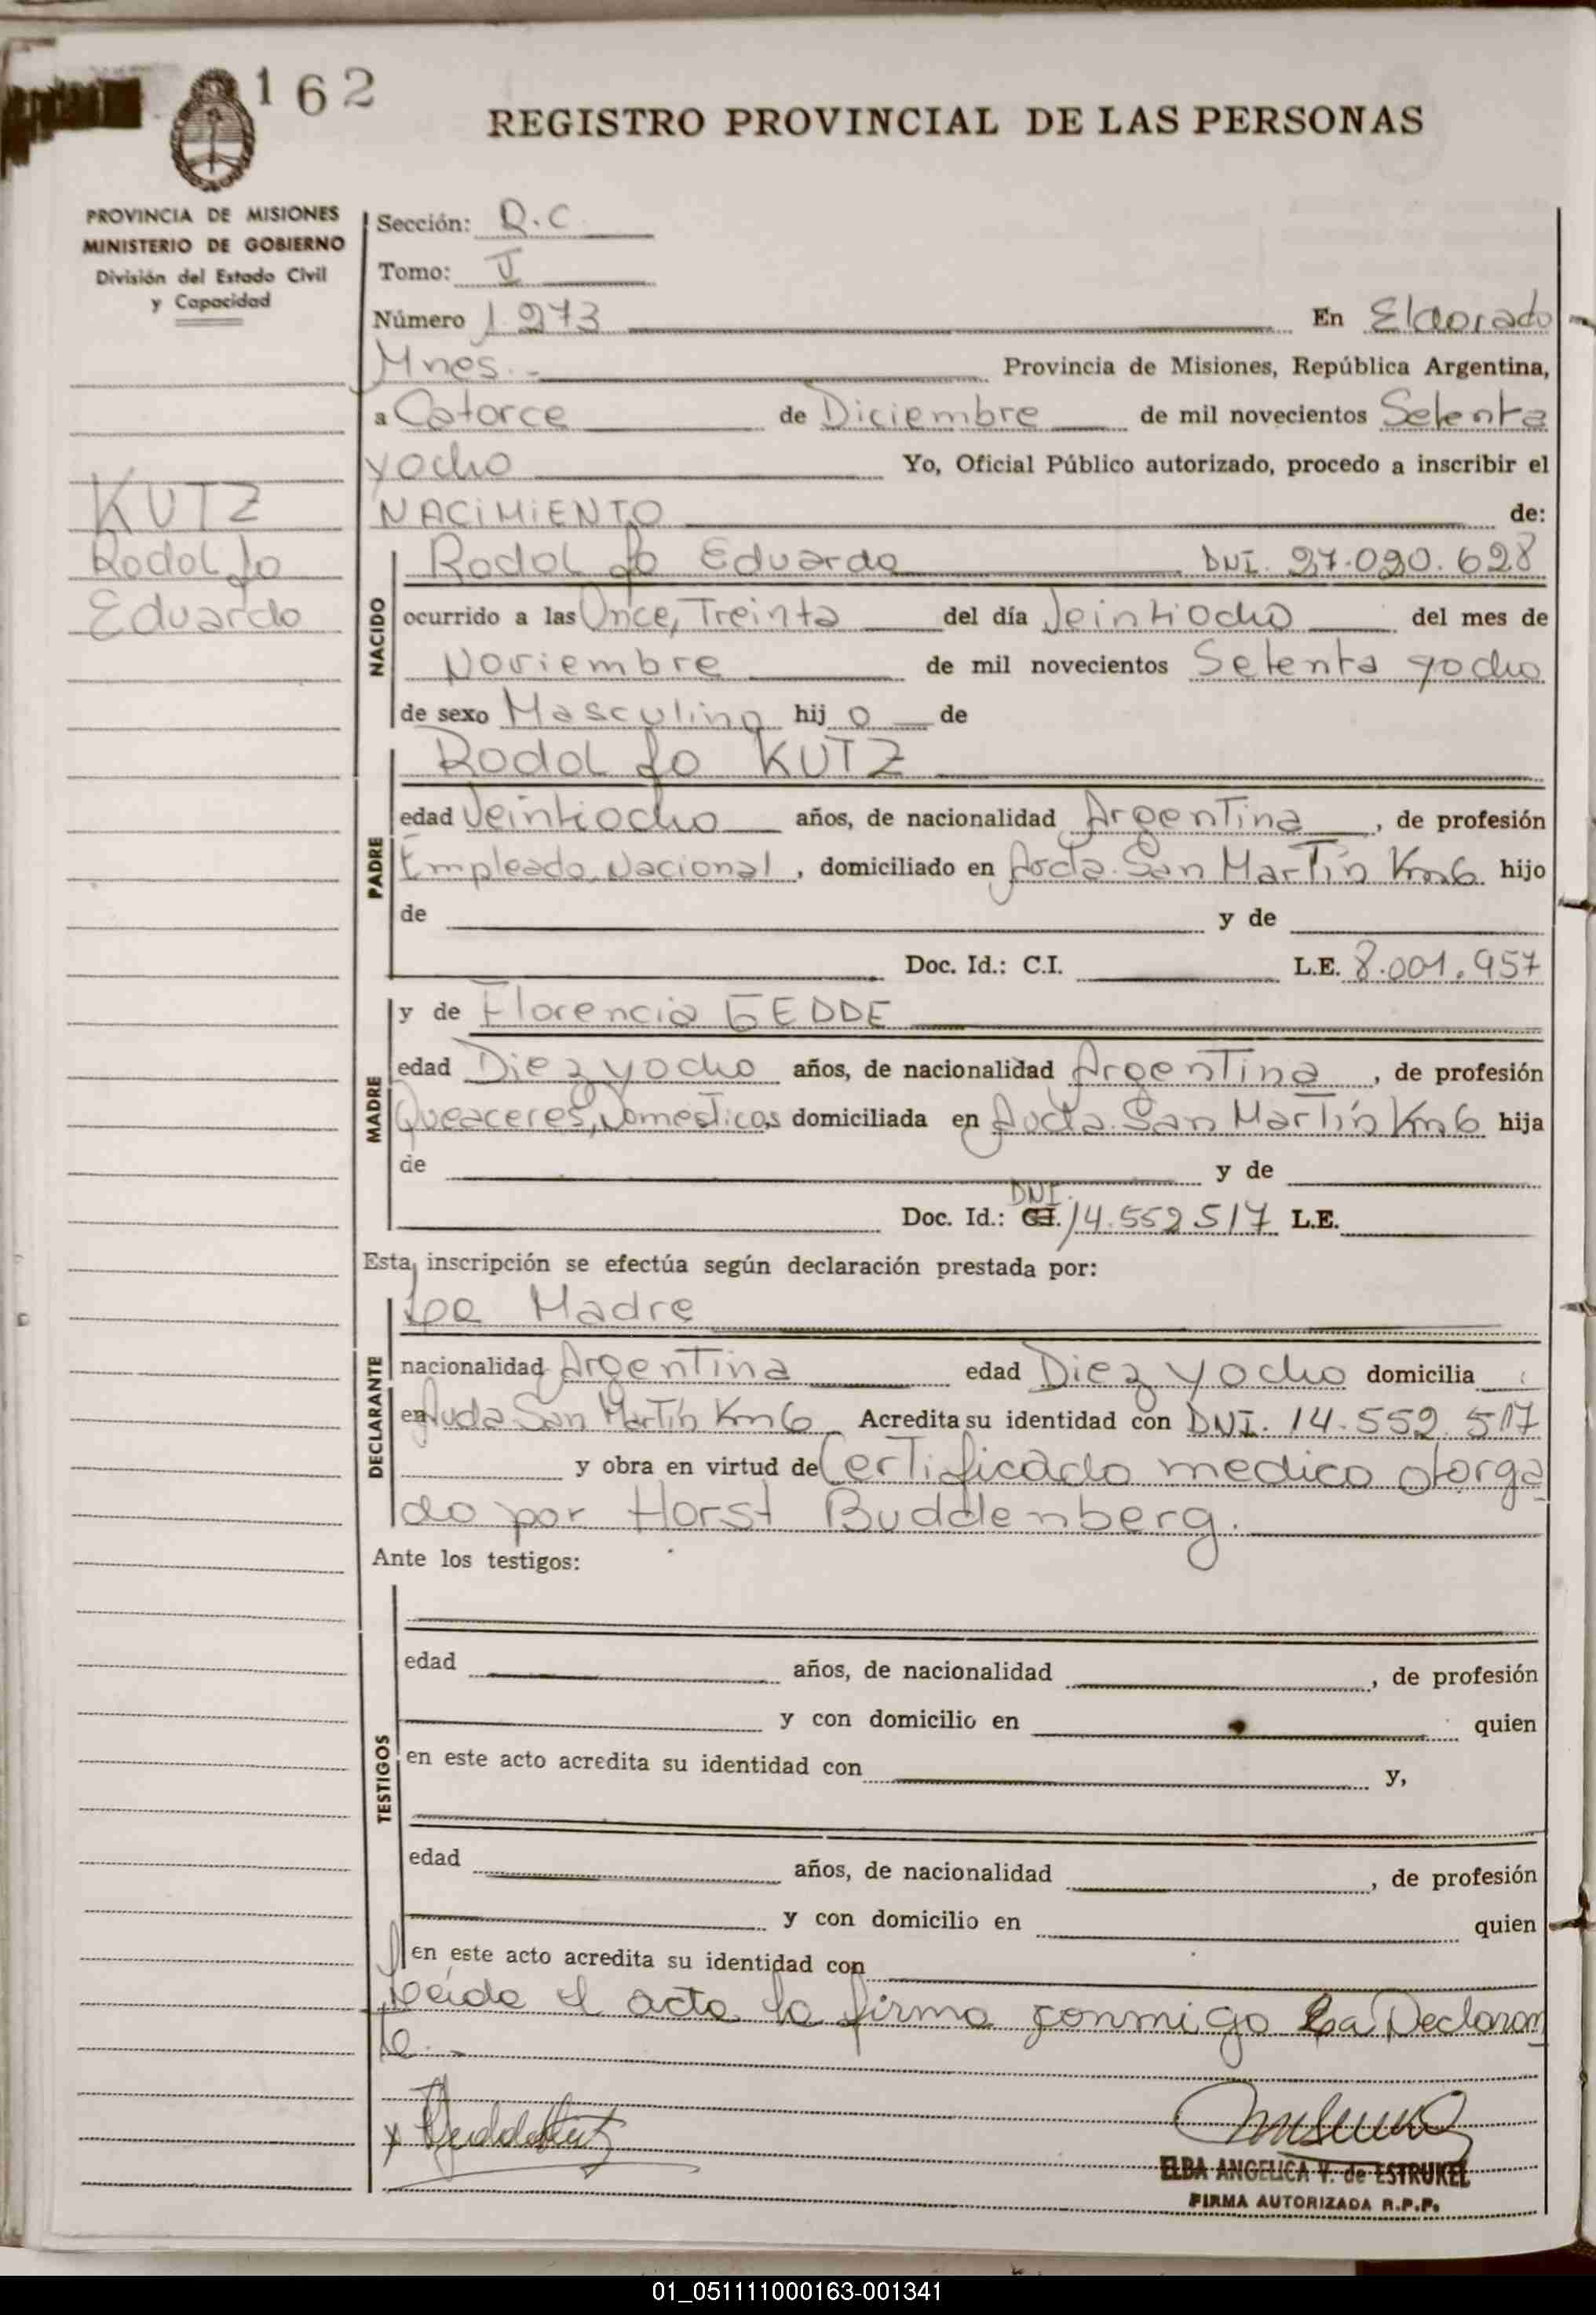 162
REGISTRO PROVINCIAL DE LAS PERSONAS
PROVINCIA DE MISIONES
MINISTERIO DE GOBIERNO
División del Estado Civil
y Capacidad
KUTZ
Rodolfo
Eduardo
Sección: R.C
Tomo: V
Número 1.273 En Eldorado
Mnes.- Provincia de Misiones, República Argentina,
a Catorce de Diciembre de mil novecientos Setenta
y ocho Yo, Oficial Público autorizado, procedo a inscribir el
NACIMIENTO de:
NACIDO
Rodolfo Eduardo DNI. 27.020.628
ocurrido a las Once, Treinta del día Veintiocho del mes de
Noviembre de mil novecientos Setenta y ocho
de sexo Masculino hij o de
PADRE
Rodolfo KUTZ
edad Veintiocho años, de nacionalidad Argentina, de profesión
Empleado Nacional, domiciliado en Avda. San Martín Km 6 hijo
de y de
Doc. Id.: C.I. L.E. 8.001.957
MADRE
y de Florencia GEDDE
edad Diez y ocho años, de nacionalidad Argentina, de profesión
Queaceres, Domesticos domiciliada en Avda. San Martín Km 6 hija
de y de
DNI.
Doc. Id.: C.I. 14.552 517 L.E.
Esta inscripción se efectúa según declaración prestada por:
DECLARANTE
La Madre
nacionalidad Argentina edad Diez y ocho domicilia
en Avda San Martín Km 6 Acredita su identidad con DNI. 14.552.517
y obra en virtud de Certificado medico otorga
do por Horst Buddenberg.
Ante los testigos:
TESTIGOS
edad años, de nacionalidad , de profesión
y con domicilio en quien
en este acto acredita su identidad con y,
edad años, de nacionalidad , de profesión
y con domicilio en quien
en este acto acredita su identidad con
Leída el acta la firma conmigo La Declaran
te.-
ELBA ANGELICA V. de ESTRUKEL
FIRMA AUTORIZADA R.P.P.
01_051111000163-001341